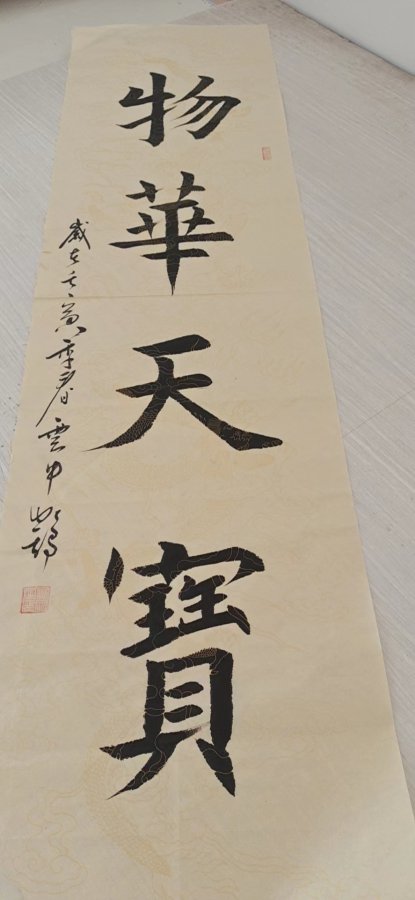 物華天寶
歲在壬寅年春雲中